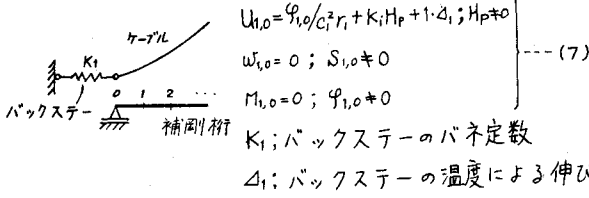 ケーブル
K₁
0 1 2 ...
バックステー
補剛桁
U₁,₀ = φ₁,₀/c₁²r₁ + K₁Hp + 1·Δ₁ ; Hp≠0
w₁,₀ = 0 ; S₁,₀≠0
M₁,₀ = 0 ; φ₁,₀≠0
--- (7)
K₁ ; バックステーのバネ定数
Δ₁ ; バックステーの温度による伸び